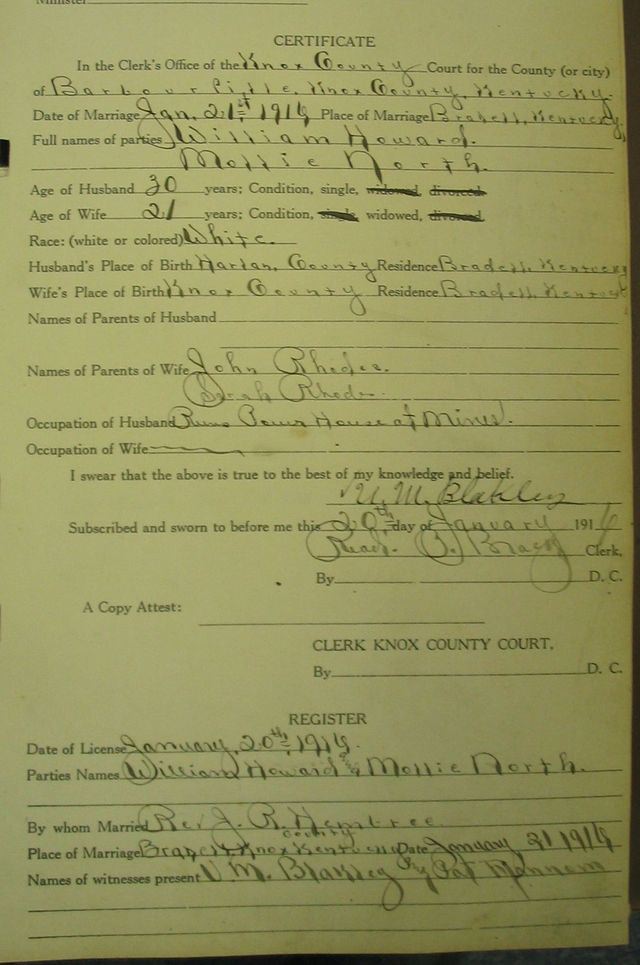 Minister
CERTIFICATE
In the Clerk's Office of the Knox County Court for the County (or city)
of Barbourville, Knox County, Kentucky.
Date of Marriage Jan, 21st 1916 Place of Marriage Kentucky,
Full names of parties William Howard.
Mollie North.
Age of Husband 30 years; Condition, single, widowed, divorced.
Age of Wife 21 years; Condition, single, widowed, divorced.
Race: (white or colored) White.
Husband's Place of Birth Harlan, County Residence Kentucky
Wife's Place of Birth Knox County Residence Kentucky
Names of Parents of Husband
Names of Parents of Wife John Rhodes.
Sarah Rhodes.
Occupation of Husband Runs Power House at Mines.
Occupation of Wife
I swear that the above is true to the best of my knowledge and belief.
M. Blakley
Subscribed and sworn to before me this 20th day of January 1916
Read. P. Black Clerk,
By D. C.
A Copy Attest:
CLERK KNOX COUNTY COURT.
By D. C.
REGISTER
Date of License January, 20th, 1916.
Parties Names William Howard & Mollie North.
By whom Married Rev J. R. Hembree
Place of Marriage Knox County Kentucky Date January 21 1916
Names of witnesses present M. Blakley & Pat